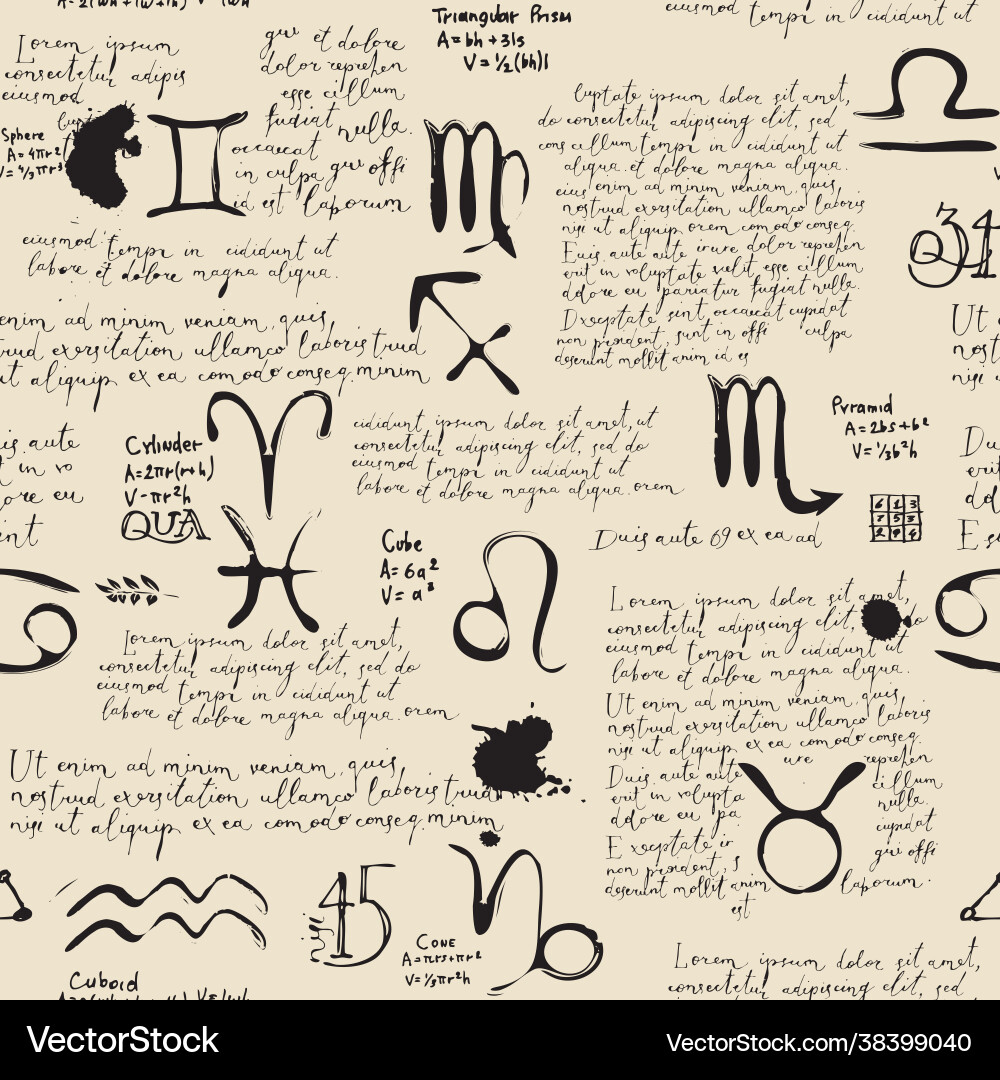 Triangular Prism
A=bh+3ls
V=½(bh)l
eiusmod tempr in cididunt ut
Lorem ipsum
consectetur adipis
eiusmod
Sphere
A=4πr²
V=4/3πr³
gui et dolore
dolor reprehen
esse cillum
fugiat nulla.
occaecat
in culpa gui offi
id est laborum
eiusmod tempr in cididunt ut
labore et dolore magna aliqua.
enim ad minim veniam, quis,
trud exersitation ullamco laboris trud
ut aliquip ex ea comodo conseq. minim
luptate ipsum dolor sit amet,
do consectetur adipiscing elit, sed
cons cillum tempr in cididunt ut
aliqua et dolore magna aliqua.
eius enim ad minim veniam, quis,
nostrud exersitation ullamco laboris
nisi ut aliquip orem comodo conseq.
Euis aute aute irure dolor reprehen
erit in voluptate velit esse cillum
dolore eu pariatur fugiat nulla.
Dxceptate sint occaecat cupidat
non proident, sunt in offi culpa
deserunt mollit anim id es
34
Ut
nost
nisi
is aute
t in vo
ore eu
int
Cylinder
A=2πr(r+h)
V-πr²h
QUA
cididunt ipsum dolor sit amet, ut
consectetur adipiscing elit, sed do
eiusmod tempr in cididunt ut
labore et dolore magna aliqua. orem
Pyramid
A=2bs+b²
V=⅓b²h
6 1 3
7 5 3
2 9 4
Duis aute 69 ex ea ad
Du
erit
dol
E s
Cube
A=6a²
V=a³
Lorem ipsum dolor sit amet,
consectetur adipiscing elit, sed do
eiusmod tempr in cididunt ut
labore et dolore magna aliqua. orem
Ut enim ad minim veniam, quis,
nostrud exersitation ullamco laboris trud
nisi ut aliquip ex ea comodo conseq. minim
Lorem ipsum dolor sit amet,
consectetur adipiscing elit, do
eiusmod tempr in cididunt ut
labore et dolore magna aliqua.
Ut enim ad minim veniam, quis,
nostrud exersitation ullamco laboris
nisi ut aliquip ex ea comodo conseq.
Duis aute aute ure reprehen
erit in volupta cillum
dolore eu pa nulla.
E xceptate ir cupidat
non proident, s gui offi
deserunt mollit anim laborum.
est
45
Cone
A=πrs+πr²
V=⅓πr²h
Cuboid
Lorem ipsum dolor sit amet,
consectetur adipiscing elit, sed
VectorStock
VectorStock.com/38399040